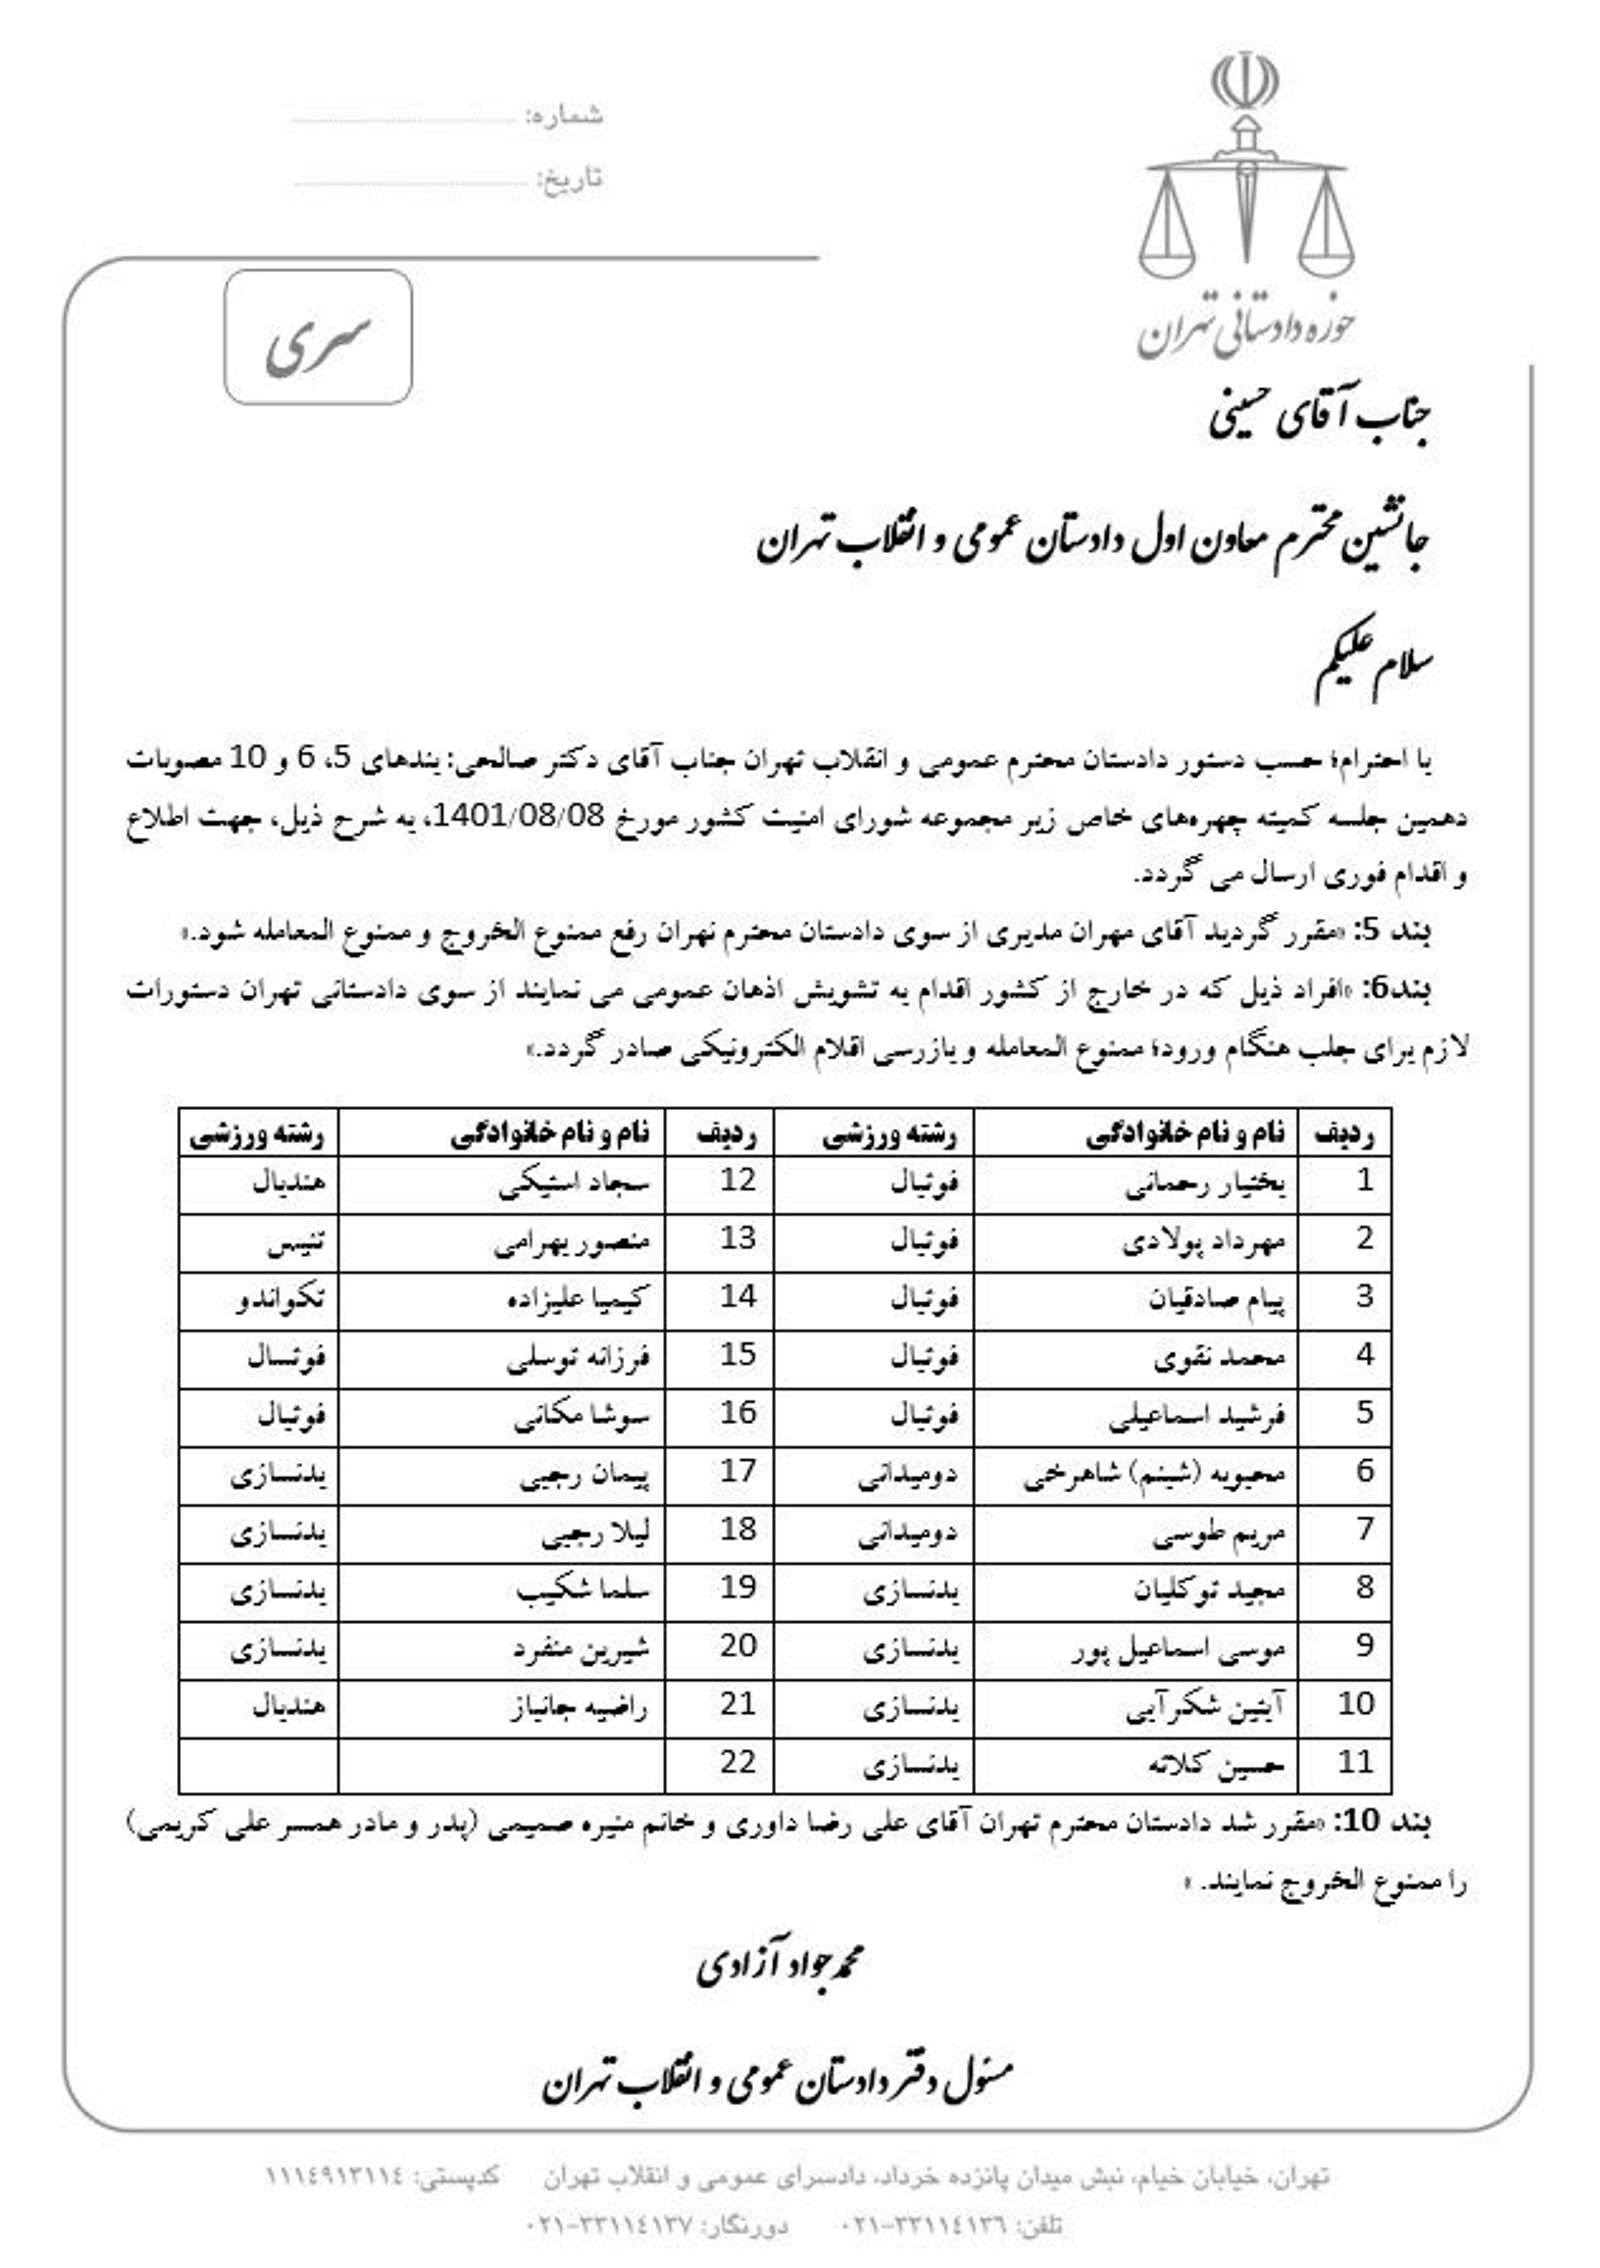 شماره:
تاریخ:
حوزه دادستانی تهران
سری
جناب آقای حسینی
جانشین محترم معاون اول دادستان عمومی و انقلاب تهران
سلام علیکم
با احترام؛ حسب دستور دادستان محترم عمومی و انقلاب تهران جناب آقای دکتر صالحی: بندهای 5، 6 و 10 مصوبات
دهمین جلسه کمیته چهره‌های خاص زیر مجموعه شورای امنیت کشور مورخ 1401/08/08، به شرح ذیل، جهت اطلاع
و اقدام فوری ارسال می گردد.
بند 5: «مقرر گردید آقای مهران مدیری از سوی دادستان محترم تهران رفع ممنوع الخروج و ممنوع المعامله شود.»
بند6: «افراد ذیل که در خارج از کشور اقدام به تشویش اذهان عمومی می نمایند از سوی دادستانی تهران دستورات
لازم برای جلب هنگام ورود؛ ممنوع المعامله و بازرسی اقلام الکترونیکی صادر گردد.»
ردیف نام و نام خانوادگی رشته ورزشی ردیف نام و نام خانوادگی رشته ورزشی
1 بختیار رحمانی فوتبال 12 سجاد استیکی هندبال
2 مهرداد پولادی فوتبال 13 منصور بهرامی تنیس
3 پیام صادقیان فوتبال 14 کیمیا علیزاده تکواندو
4 محمد تقوی فوتبال 15 فرزانه توسلی فوتسال
5 فرشید اسماعیلی فوتبال 16 سوشا مکانی فوتبال
6 محبوبه (شبنم) شاهرخی دومیدانی 17 پیمان رجبی بدنسازی
7 مریم طوسی دومیدانی 18 لیلا رجبی بدنسازی
8 مجید توکلیان بدنسازی 19 سلما شکیب بدنسازی
9 موسی اسماعیل پور بدنسازی 20 شیرین منفرد بدنسازی
10 آبتین شکرآبی بدنسازی 21 راضیه جانباز هندبال
11 حسین کلاته بدنسازی 22
بند 10: «مقرر شد دادستان محترم تهران آقای علی رضا داوری و خانم منیره صمیمی (پدر و مادر همسر علی کریمی)
را ممنوع الخروج نمایند. »
محمدجواد آزادی
مسئول دفتر دادستان عمومی و انقلاب تهران
تهران، خیابان خیام، نبش میدان پانزده خرداد، دادسرای عمومی و انقلاب تهران کدپستی: ۱۱۱٤۹۱۳۱۱٤
تلفن: ۳۳۱۱٤۱۳٦-۰۲۱ دورنگار: ۳۳۱۱٤۱۳۷-۰۲۱